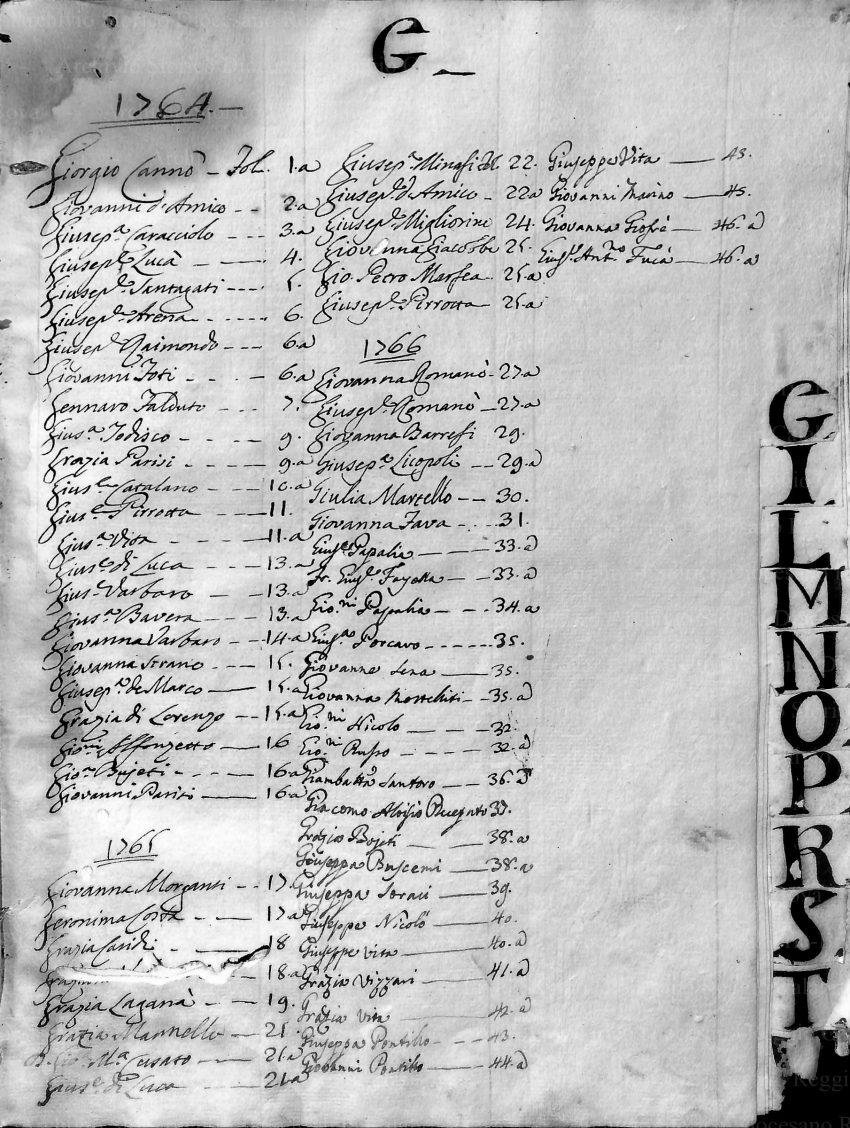 G
1764.
Giorgio Cannò - Fol. 1.a
Giovanni d'Amico - - 2.a
Giusep.ª Caracciolo - - - 3.a
Giusep.ᵉ Lucà - 4.
Giusep.ᵉ Santagati - - - 5.
Giusep.ᵉ Arena - - - - - 6.
Giusep.ᵉ Raimondo - - - 6.a
Giovanni Foti - - - - 6.a
Gennaro Falduto - - - 7.
Gius.ª Todisco - - - - 9.
Grazia Parisi - - - - - 9.a
Gius.ᵉ Catalano - - - - 10.a
Gius.ᵉ Perrotta - - - 11.
Gius.ª Vita - - - 11.a
Gius.ᵉ di Luca - - - 13.a
Gius.ᵉ Varbaro - - - 13.a
Gius.ª Bavera - - - - 13.a
Giovanna Varbaro - - - 14.a
Giovanna Strano - - - 15.
Giusep.ª de Marco - 15.a
Grazia di Lorenzo - - - 15.a
Gio.ⁿⁱ 16
Gio.ª Bujeti - - - - 16.a
Giovanni Pariti - 16.a
1765
Giovanna Morganti - - 17.
Geronima Costa - - - 17.a
Grazia - 18
18.a
Grazia Laganà - - 19.
Grazia Mannello - - 21.
Gio. M.ª Cusato - - 21.a
Gius.ᵉ di Luca - - 21.a
Giusep.ª Minasi 22.
Giusep.ᵉ d'Amico - 22.a
Giusep.ᵉ Migliorini 24.
Giovanna Giacobbe 25.
Gio. Petro Marfea 25.a
Giusep.ᵉ Perrotta - 25.a
1766
Giovanna Romanò - 27.a
Giusep.ᵉ Romanò - 27.a
Giovanna Barresi 29.
Giusep.ª Licopoli - - 29.a
Giulia Martello - - 30.
Giovanna Fava - - - 31.
Gius.ᵉ Papalia - 33.a
Gius.ᵉ - - 33.a
Gio.ⁿⁱ Papalia - - - 34.a
Gius.ª Porcaro - - - - - 35.
Giovanne Sena - 35.
Giovanna - - 35.a
Gio.ⁿⁱ Nicolò - 32.
Gio.ⁿⁱ Russo - - - - 32.a
Giambatt.ª Santoro - - 36.a
Giacomo Aloisio 37.
Grazia Bojeti - 38.a
Giuseppa Buscemi - 38.a
Giuseppa Soraci - 39.
Giuseppe Nicolò - 40.
Giuseppe Vita - 40.a
Grazia Vizzari - 41.a
Grazia Vita - 42.a
Giuseppa Pontillo - - 43.
Giovanni Pontillo - 44.a
Giuseppe Vita - 45.
Giovanni Marino - 45.
Giovanna Giofrè - 46.a
Gius.ᵉ Ant.º Fucà - 46.a
G
I
L
M
N
O
P
R
S
T